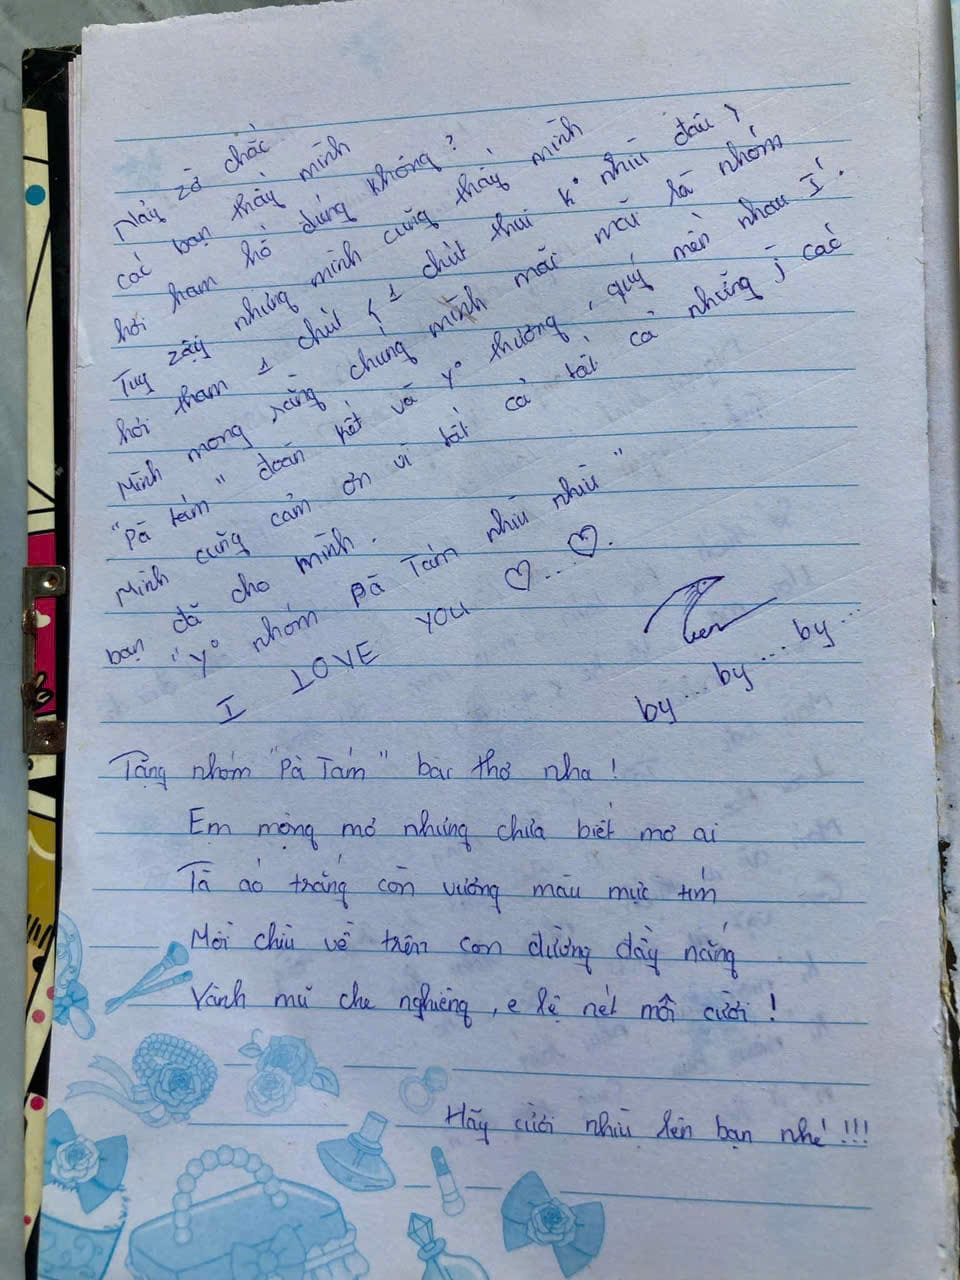 Nảy zờ chắc
các bạn thấy mình
hơi ham hố đúng không?
Tuy zậy nhưng mình cũng thấy mình
hơi tham 1 chút { 1 chút thui k° nhìu đâu }
Mình mong rằng chúng mình mãi mãi là nhóm
"Pà tám" đoàn kết và y° thương, quý mến nhau I'.
Mình cũng cảm ơn vì tất cả tất cả những j các
bạn đã cho mình.
"Y° nhóm Pà Tám nhìu nhìu"
I LOVE YOU ♡....♡.
by ... by ... by ...
Tặng nhóm "Pà Tám" bài thơ nha !
Em mộng mơ nhưng chưa biết mơ ai
Tà áo trắng còn vương màu mực tím
Mỗi chìu về trên con đường đầy nắng
Vành mũ che nghiêng, e lệ nét môi cười !
Hãy cười nhìu lên bạn nhé !!!